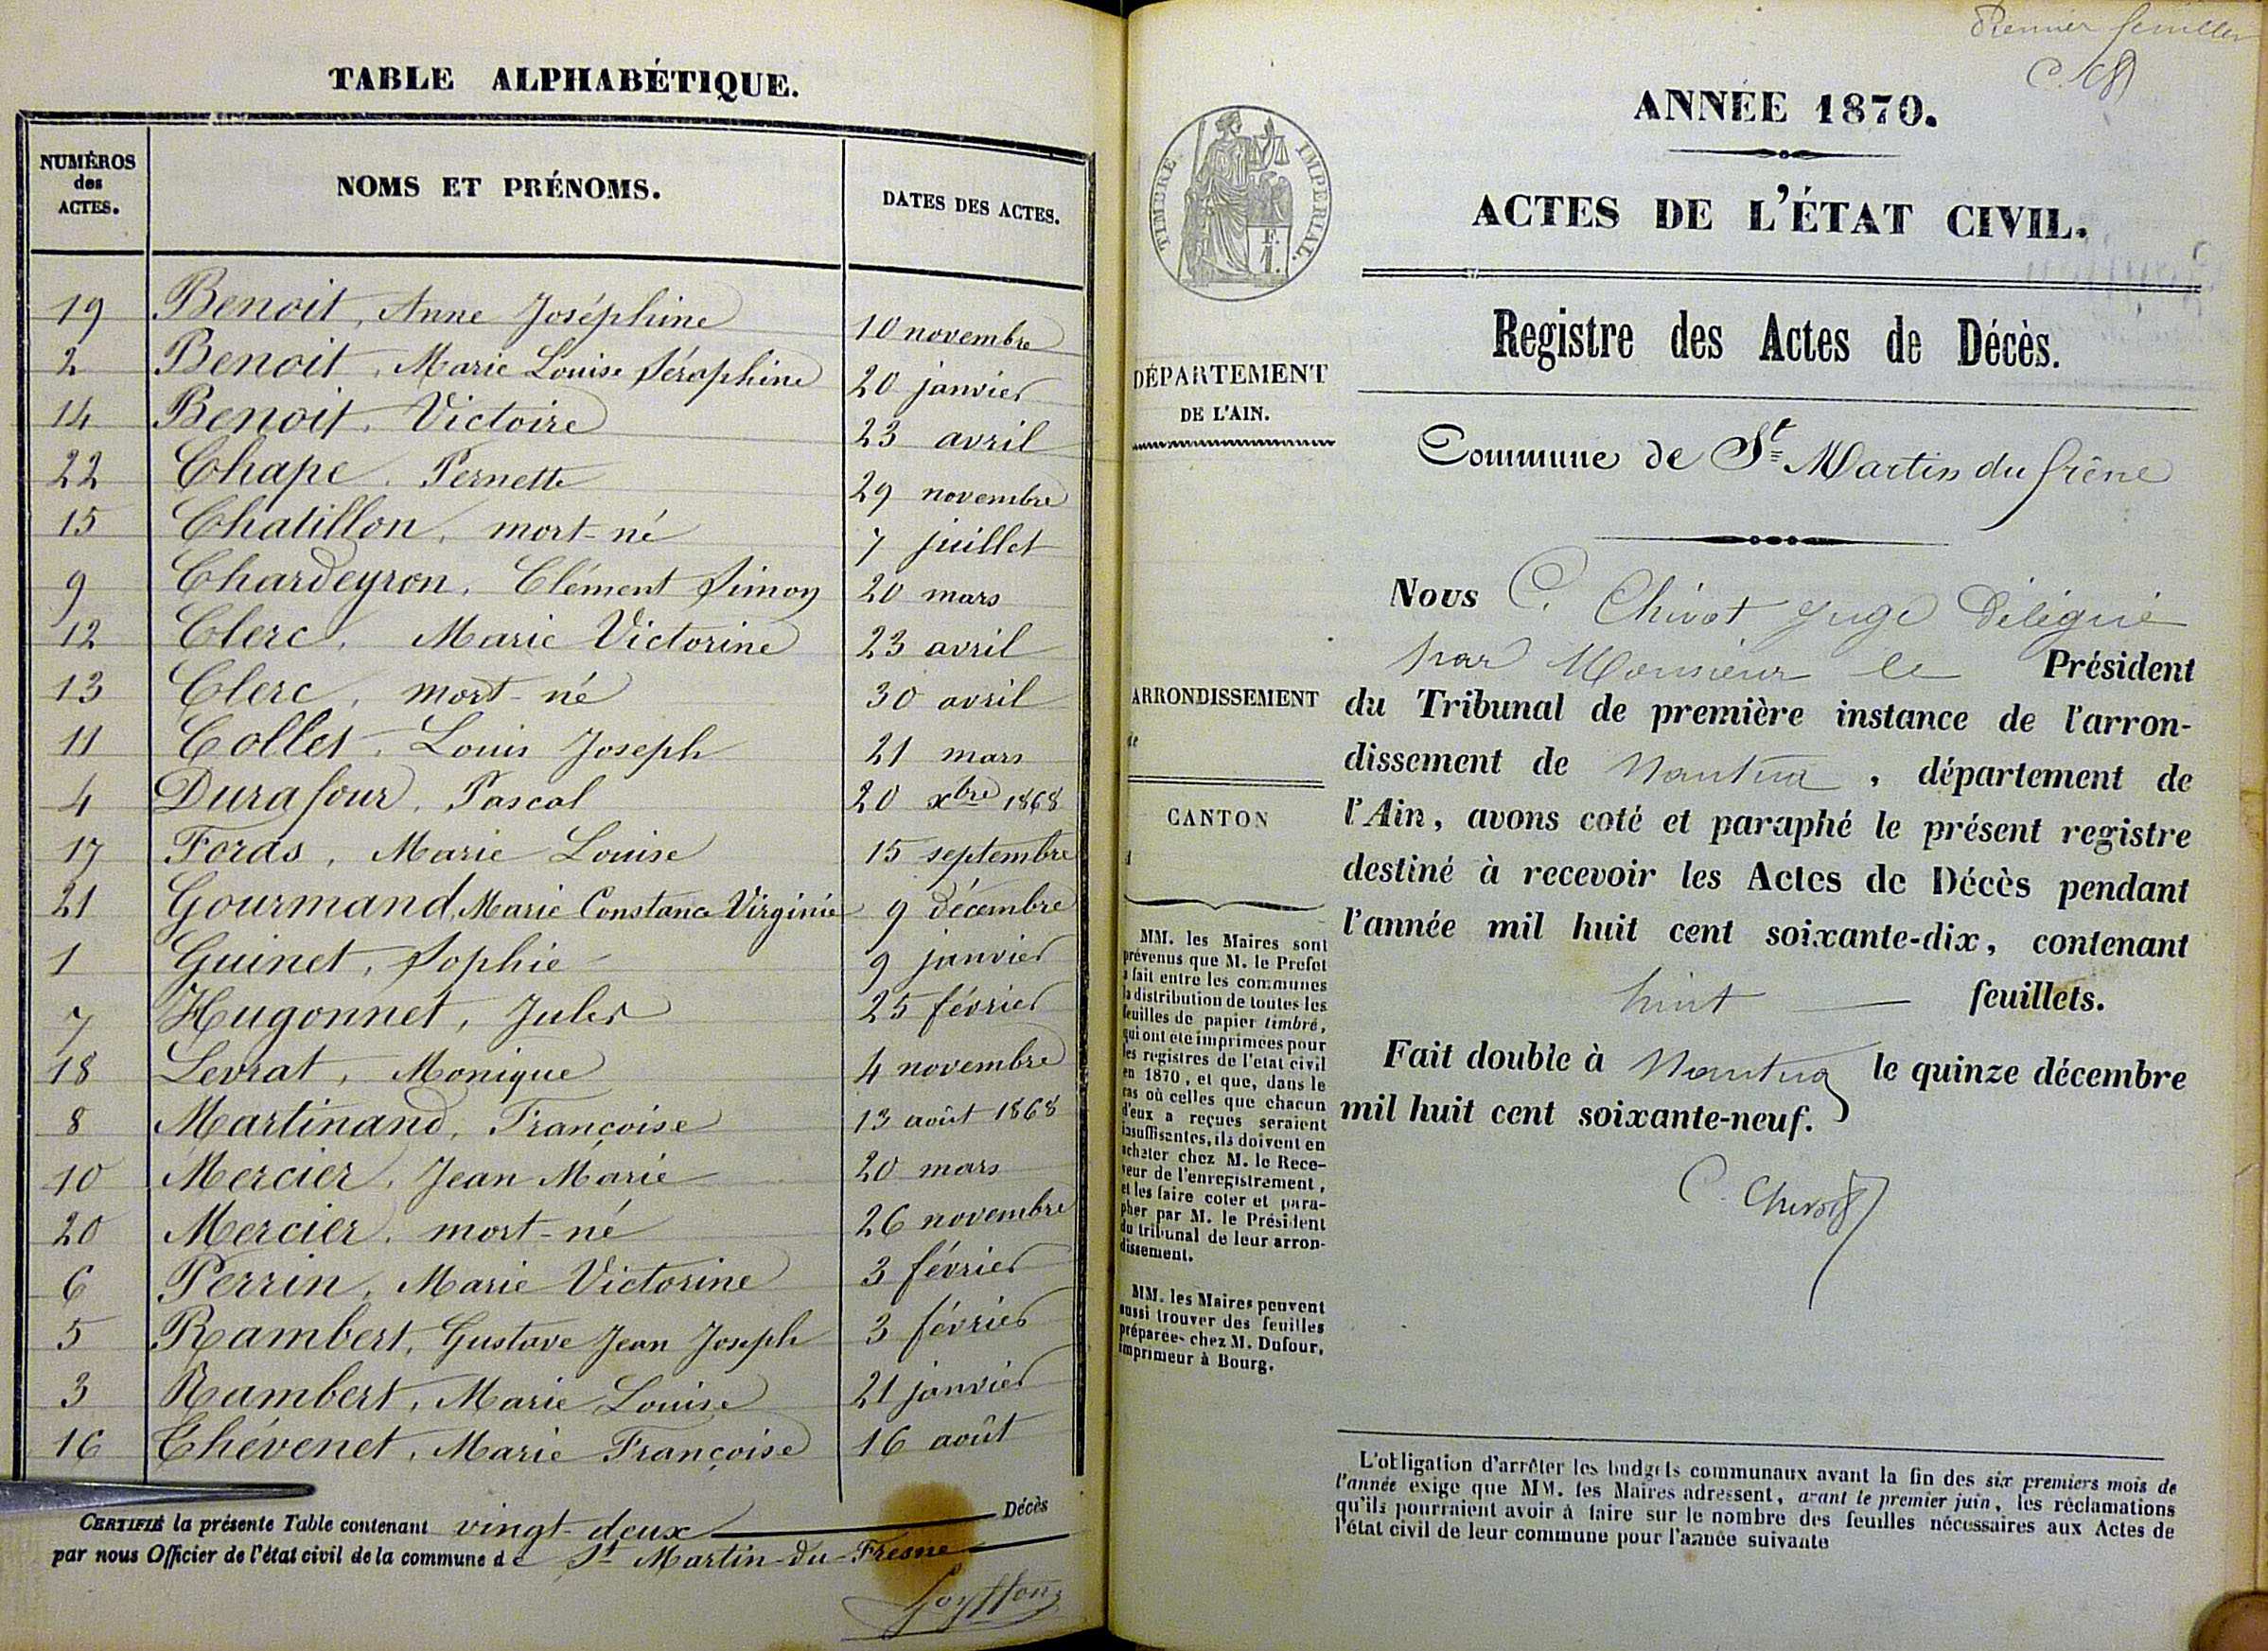 TABLE ALPHABÉTIQUE.
NUMÉROS
des
ACTES.
NOMS ET PRÉNOMS.
DATES DES ACTES.
19 Benoit, Anne Joséphine 10 novembre
2 Benoit, Marie Louise Séraphine 20 janvier
14 Benoit, Victoire 23 avril
22 Chape, Pernette 29 novembre
15 Chatillon, mort-né 7 juillet
9 Chardeyron, Clément Simon 20 mars
12 Clerc, Marie Victorine 23 avril
13 Clerc, mort-né 30 avril
11 Collet, Louis Joseph 21 mars
4 Durafour, Pascal 20 xbre 1868
17 Foras, Marie Louise 15 septembre
21 Gourmand, Marie Constance Virginie 9 décembre
1 Guinet, Sophie 9 janvier
7 Hugonnet, Jules 25 février
18 Levrat, Monique 4 novembre
8 Martinand, Françoise 13 août 1868
10 Mercier, Jean Marie 20 mars
20 Mercier, mort-né 26 novembre
6 Perrin, Marie Victorine 3 février
5 Rambert, Gustave Jean Joseph 3 février
3 Rambert, Marie Louise 21 janvier
16 Thévenet, Marie Françoise 16 août
CERTIFIÉ la présente Table contenant vingt-deux Décès
par nous Officier de l'état civil de la commune de St Martin-du-Fresne
Goyffon
Premier feuillet
ANNÉE 1870.
TIMBRE IMPÉRIAL.
ACTES DE L'ÉTAT CIVIL.
Registre des Actes de Décès.
DÉPARTEMENT
DE L'AIN.
Commune de St Martin du frêne
Nous C. Chivot Juge Délégué
par Monsieur le Président
du Tribunal de première instance de l'arron-
dissement de Nantua, département de
l'Ain, avons coté et paraphé le présent registre
destiné à recevoir les Actes de Décès pendant
l'année mil huit cent soixante-dix, contenant
huit feuillets.
Fait double à Nantua le quinze décembre
mil huit cent soixante-neuf.
C. Chivot
ARRONDISSEMENT
de
CANTON
MM. les Maires sont
prévenus que M. le Préfet
a fait entre les communes
la distribution de toutes les
feuilles de papier timbré,
qui ont été imprimées pour
les registres de l'état civil
en 1870, et que, dans le
cas où celles que chacun
d'eux a reçues seraient
insuffisantes, ils doivent en
acheter chez M. le Rece-
veur de l'enregistrement,
et les faire coter et para-
pher par M. le Président
du tribunal de leur arron-
dissement.
MM. les Maires peuvent
aussi trouver des feuilles
préparées chez M. Dufour,
imprimeur à Bourg.
L'obligation d'arrêter les budgets communaux avant la fin des six premiers mois de
l'année exige que MM. les Maires adressent, avant le premier juin, les réclamations
qu'ils pourraient avoir à faire sur le nombre des feuilles nécessaires aux Actes de
l'état civil de leur commune pour l'année suivante